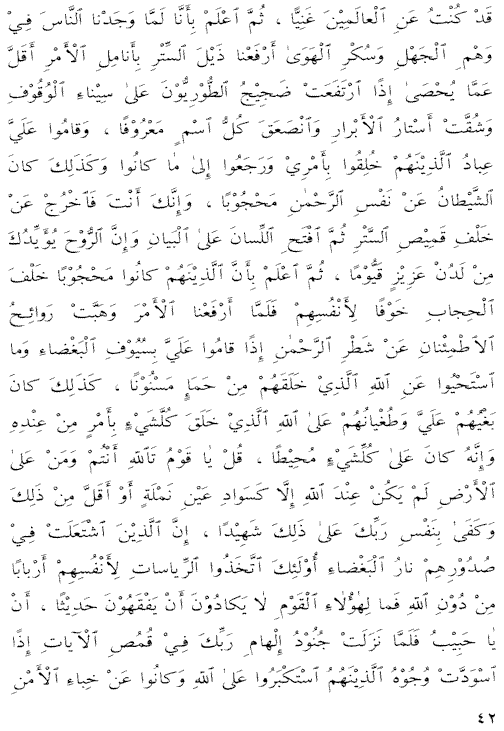 قَدْ كُنْتُ عَنِ ٱلْعالَمِيْنَ غَنِيًّا ، ثُمَّ ٱعْلَمْ بِأَنَّا لَمَّا وَجَدْنا ٱلنَّاسَ فِيْ
وَهْمِ ٱلْجَهْلِ وَسُكْرِ ٱلْهَوَىٰ أَرْفَعْنا ذَيْلَ ٱلسِّتْرِ بِأَنامِلِ ٱلْأَمْرِ أَقَلَّ
عَمَّا يُحْصَىٰ إِذًا ٱرْتَفَعَتْ ضَجِيْجُ ٱلطُّوْرِيُّوْنَ عَلىٰ سِيْناءِ ٱلْوُقُوْفِ
وَشُقَّتْ أَسْتارُ ٱلْأَبْرارِ وَٱنْصَعَقَ كُلُّ ٱسْمٍ مَعْرُوْفًا ، وَقامُوا عَلَيَّ
عِبادُ ٱلَّذِيْنَهُمْ خُلِقُوا بِأَمْرِيْ وَرَجَعُوا إِلىٰ ما كانُوا وَكَذلِكَ كانَ
ٱلشَّيْطانُ عَنْ نَفْسِ ٱلرَّحْمٰنِ مَحْجُوْبًا ، وَإِنَّكَ أَنْتَ فَٱخْرُجْ عَنْ
خَلْفِ قَمِيْصِ ٱلسَّتْرِ ثُمَّ ٱفْتَحِ ٱللِّسانَ عَلىٰ ٱلْبَيانِ وَإِنَّ ٱلرُّوْحَ يُؤَيِّدُكَ
مِنْ لَدُنْ عَزِيْزٍ قَيُّوْمًا ، ثُمَّ ٱعْلَمْ بِأَنَّ ٱلَّذِيْنَهُمْ كانُوا مَحْجُوْبًا خَلْفَ
ٱلْحِجابِ خَوْفًا لِأَنْفُسِهِمْ فَلَمَّا أَرْفَعْنا ٱلْأَمْرَ وَهَبَّتْ رَوائِحُ
ٱلاطْمِئْنانِ عَنْ شَطْرِ ٱلرَّحْمٰنِ إِذًا قامُوا عَلَيَّ بِسُيُوْفِ ٱلْبَغْضاءِ وَما
ٱسْتَحْيُوا عَنِ ٱللّٰهِ ٱلَّذِيْ خَلَقَهُمْ مِنْ حَمَاءٍ مَسْنُوْنًا ، كَذلِكَ كانَ
بَغْيُهُمْ عَلَيَّ وَطُغْيانُهُمْ عَلىٰ ٱللّٰهِ ٱلَّذِيْ خَلَقَ كُلَّشَيْءٍ بِأَمْرٍ مِنْ عِنْدِهِ
وَإِنَّهُ كانَ عَلىٰ كُلِّشَيْءٍ مُحِيْطًا ، قُلْ يا قَوْمُ تَاللّٰهِ أَنْتُمْ وَمَنْ عَلىٰ
ٱلْأَرْضِ لَمْ يَكُنْ عِنْدَ ٱللّٰهِ إِلَّا كَسَوادِ عَيْنِ نَمْلَةٍ أَوْ أَقَلَّ مِنْ ذلِكَ
وَكَفىٰ بِنَفْسِ رَبِّكَ عَلىٰ ذلِكَ شَهِيْدًا ، إِنَّ ٱلَّذِيْنَ ٱشْتَعَلَتْ فِيْ
صُدُوْرِهِمْ نارُ ٱلْبَغْضاءِ أُوْلَئِكَ ٱتَّخَذُوا ٱلرِّياساتِ لِأَنْفُسِهِمْ أَرْبابًا
مِنْ دُوْنِ ٱللّٰهِ فَما لِهٰؤُلاءِ ٱلْقَوْمِ لا يَكادُوْنَ أَنْ يَفْقَهُوْنَ حَدِيْثًا ، أَنْ
يا حَبِيْبُ فَلَمَّا نَزَلَتْ جُنُوْدُ إِلْهامِ رَبِّكَ فِيْ قُمُصِ ٱلْآياتِ إِذًا
ٱسْوَدَّتْ وُجُوْهُ ٱلَّذِيْنَهُمُ ٱسْتَكْبَرُوا عَلىٰ ٱللّٰهِ وَكانُوا عَنْ خِباءِ ٱلْأَمْنِ
٤٢